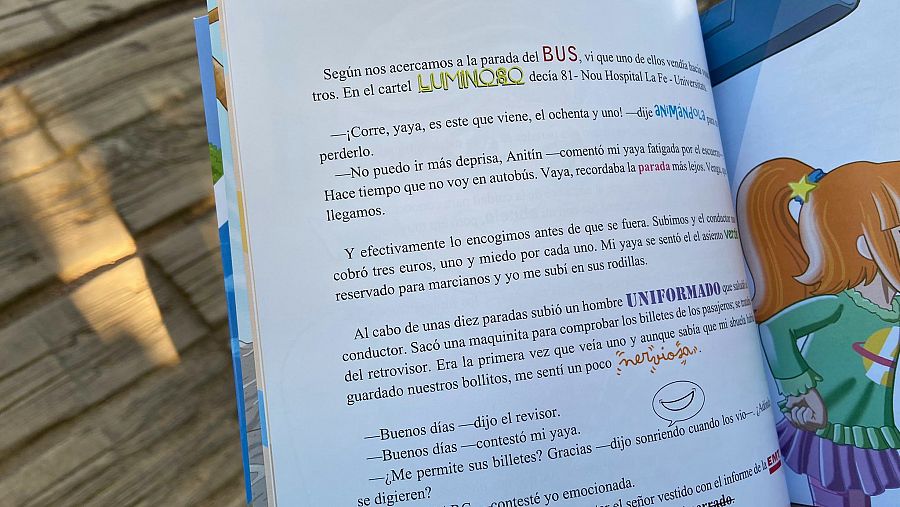 Según nos acercamos a la parada del BUS, vi que uno de ellos vendía hacia
tros. En el cartel LUMINOSO decía 81- Nou Hospital La Fe - Universitats.
—¡Corre, yaya, es este que viene, el ochenta y uno! —dije ANIMÁNDOLA
perderlo.
—No puedo ir más deprisa, Anitín —comentó mi yaya fatigada por el
Hace tiempo que no voy en autobús. Vaya, recordaba la parada más lejos.
llegamos.
Y efectivamente lo encogimos antes de que se fuera. Subimos y el conductor
cobró tres euros, uno y miedo por cada uno. Mi yaya se sentó el el asiento
reservado para marcianos y yo me subí en sus rodillas.
Al cabo de unas diez paradas subió un hombre UNIFORMADO que
conductor. Sacó una maquinita para comprobar los billetes de los pasajeros; se
del retrovisor. Era la primera vez que veía uno y aunque sabía que mi abuela
guardado nuestros bollitos, me sentí un poco nerviosa.
—Buenos días —dijo el revisor.
—Buenos días —contestó mi yaya.
—¿Me permite sus billetes? Gracias —dijo sonriendo cuando los vio—.
se digieren?
contesté yo emocionada.
el señor vestido con el informe de la EMT